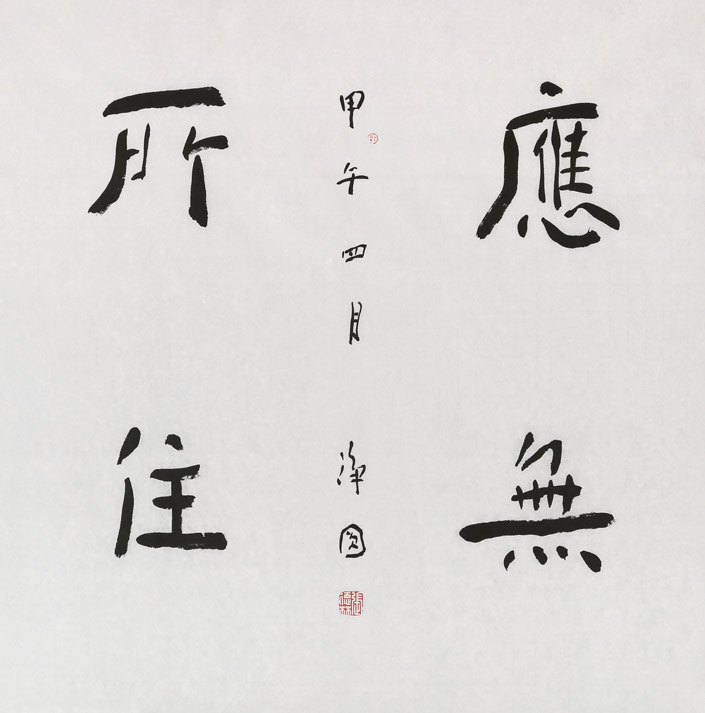 應無
所住
甲午四月
淨圓